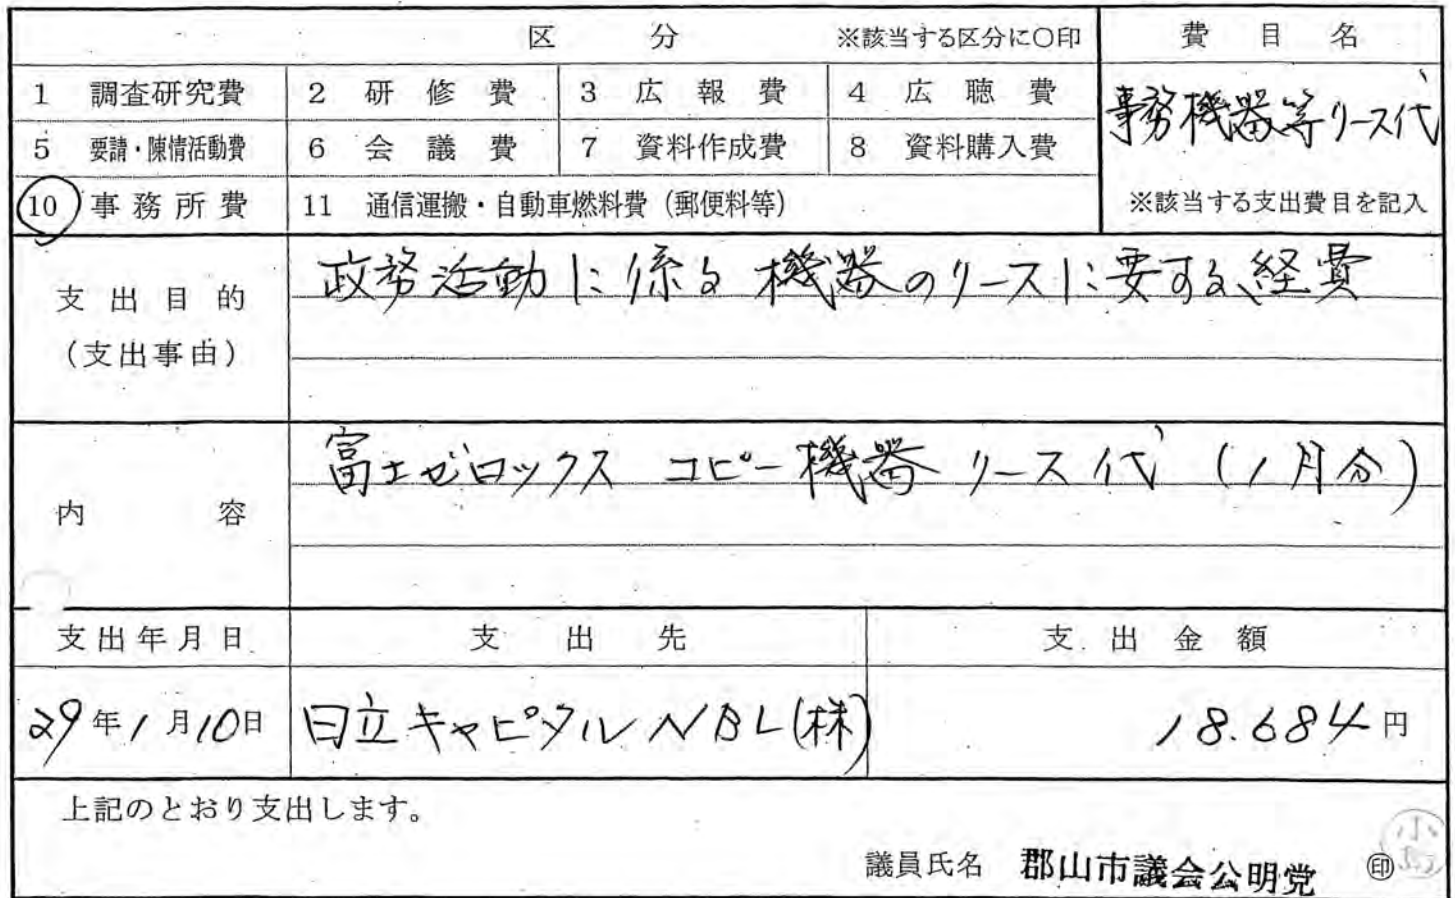 区 分 ※該当する区分に○印 費目名
1 調査研究費 2 研修費 3 広報費 4 広聴費
事務機器等リース代
5 要請・陳情活動費 6 会議費 7 資料作成費 8 資料購入費
10 事務所費 11 通信運搬・自動車燃料費（郵便料等） ※該当する支出費目を記入
政務活動に係る機器のリースに要する経費
支出目的
（支出事由）
富士ゼロックス コピー機器 リース代 (1月分)
内容
支出年月日 支出先 支出金額
29年1月10日 日立キャピタルNBL(株) 18.684円
上記のとおり支出します。
議員氏名 郡山市議会公明党 ㊞